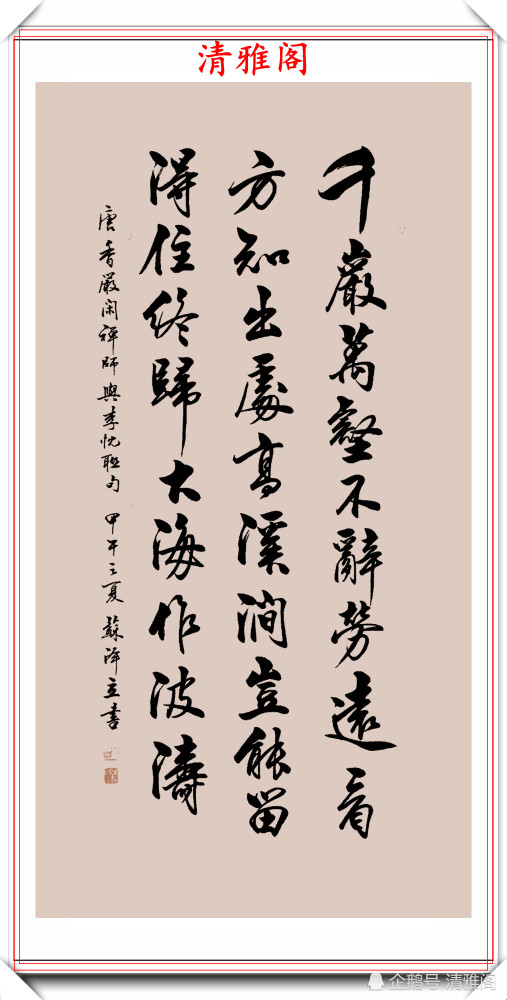 清雅阁
千巖萬壑不辭勞遠看
方知出處高溪澗豈能留
得住終歸大海作波濤
唐香嚴闲禅师與李忱聯句 甲午之夏 蘇泽立书
企鹅号 清雅阁